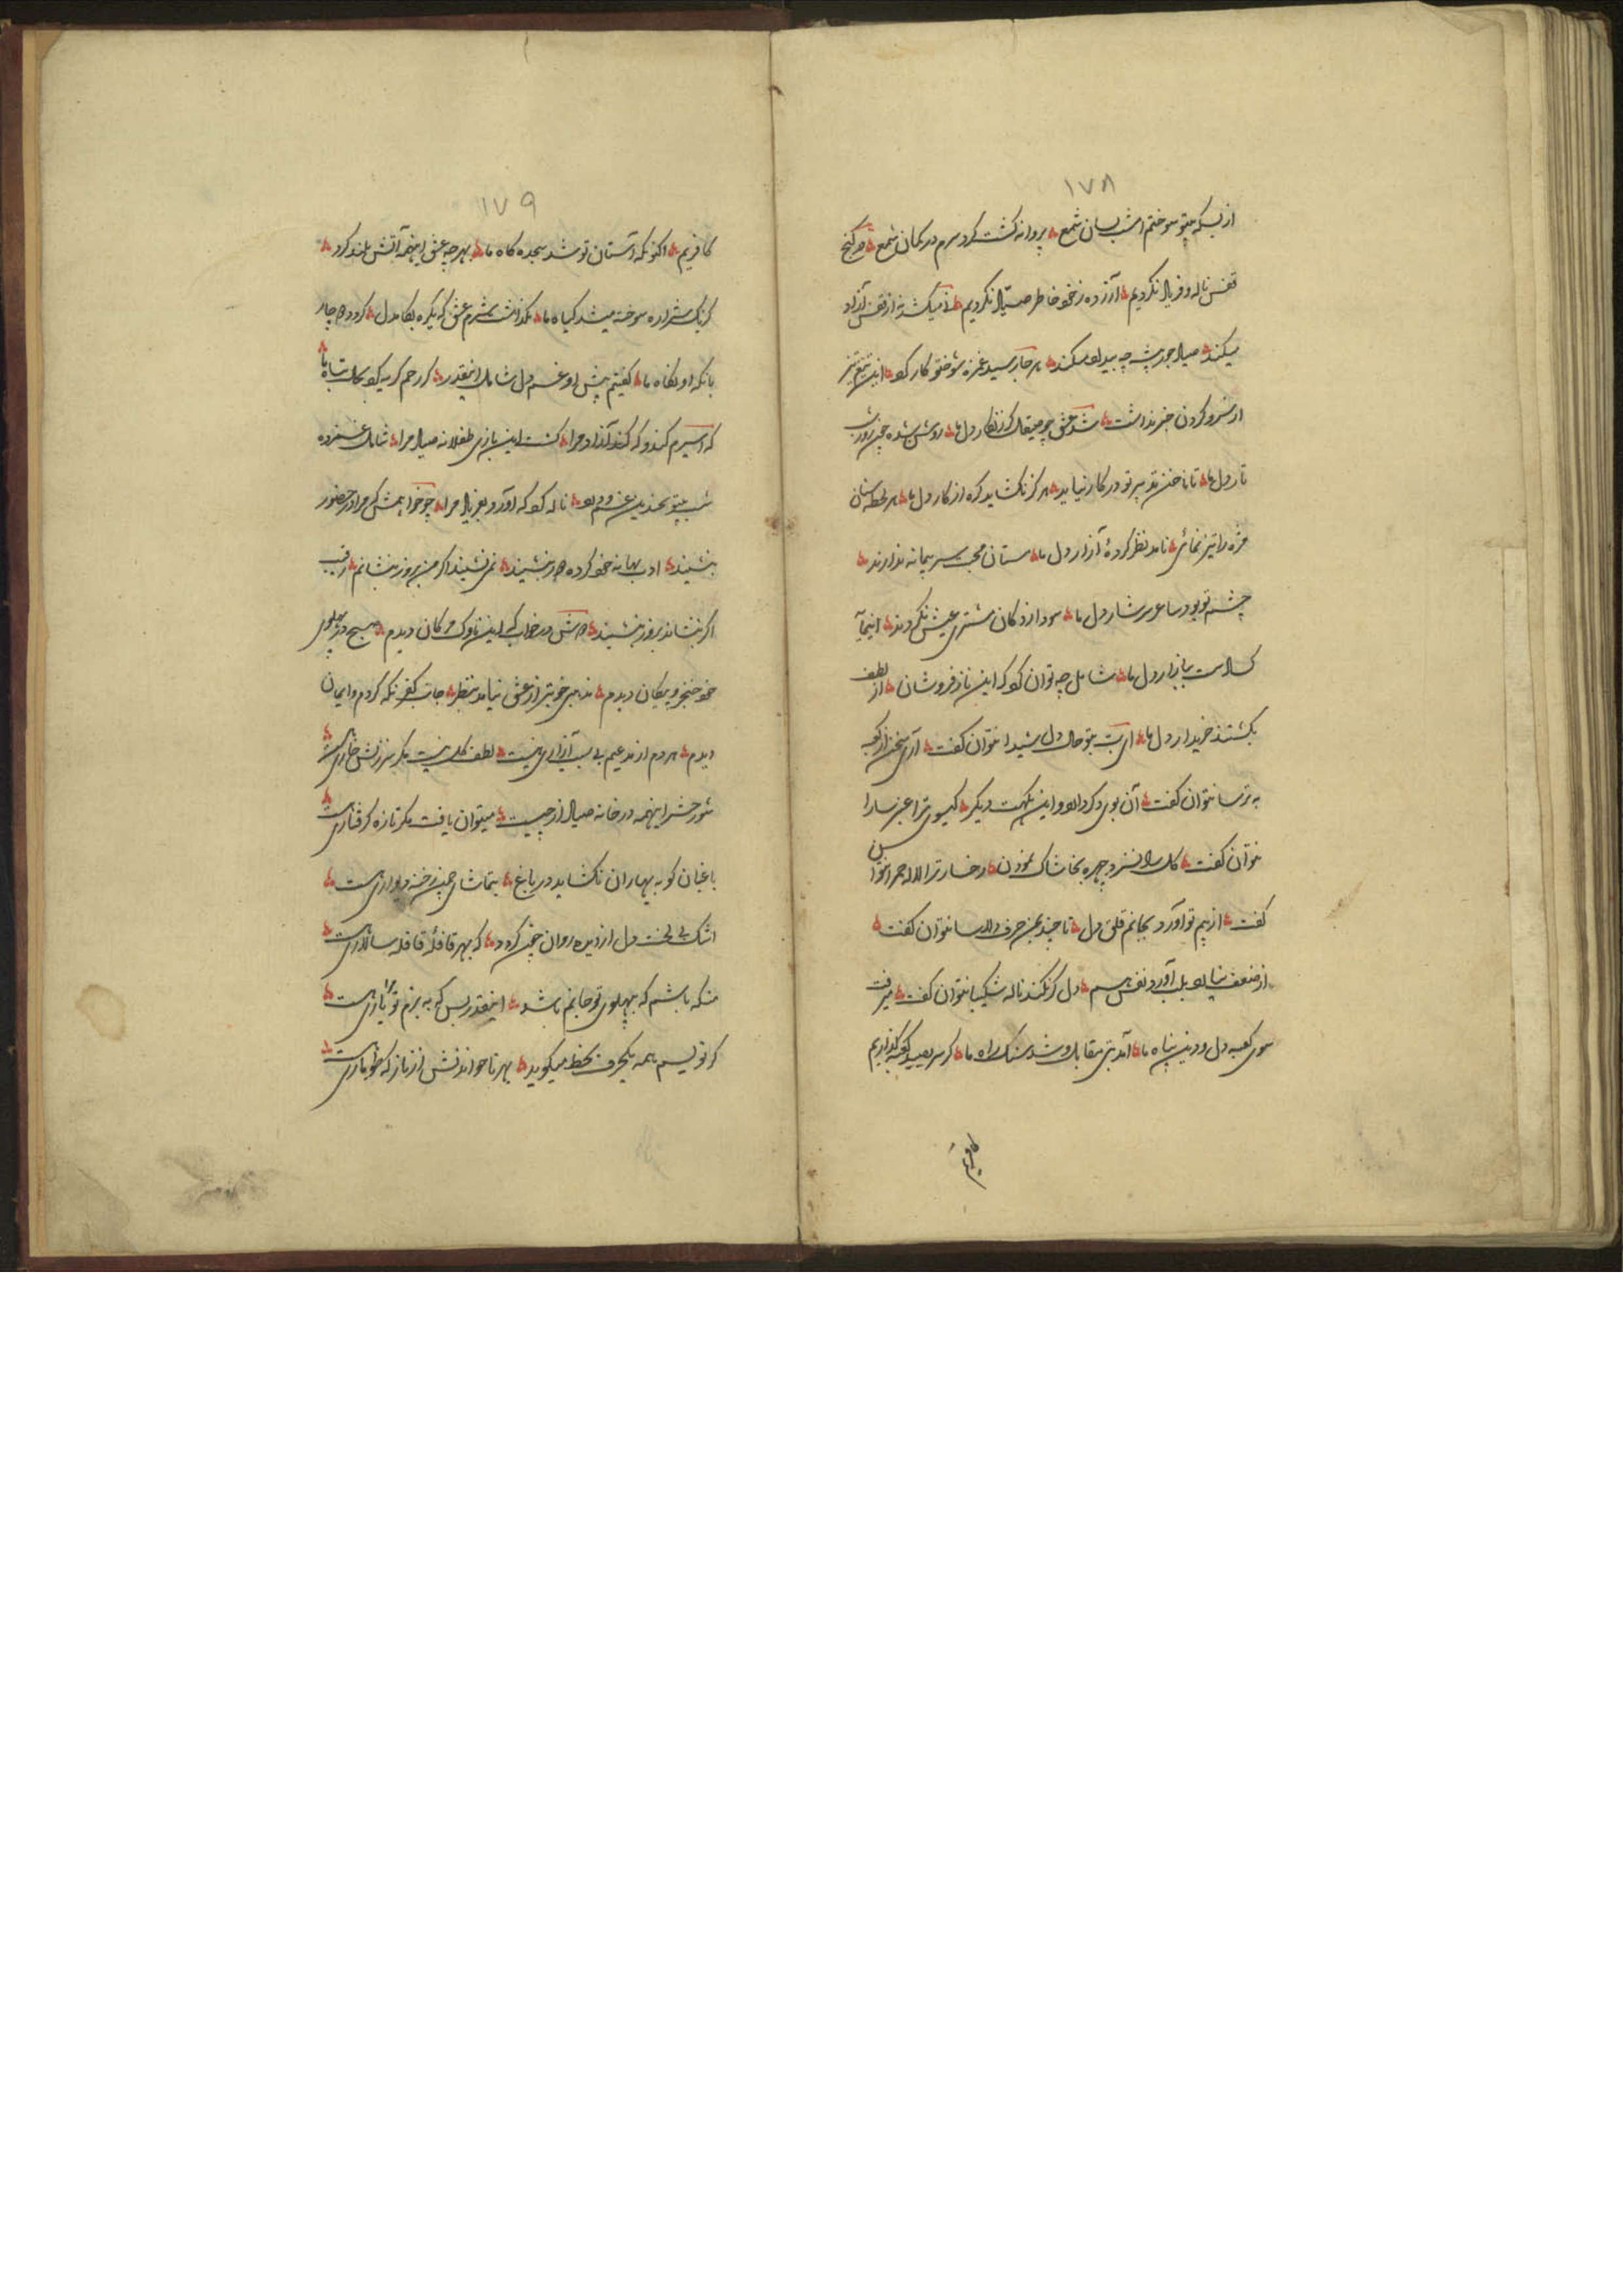 ۱۷۸
از بسکه بیتو سوختم امشب بسان شمع پروانه گشت گرد سرم در گمان شمع در کنج
قفس ناله و فریاد نکردیم آزرده ز خود خاطر صیاد نکردیم نه میکشد نه از قفس آزاد
میکند صیاد جور پیشه چه بیداد میکند هر جا رسید غمزه شوختو کار کرد این تیغ تیز
از سر و گردن خبر نداشت شد عشق چو صیقل گر زنگار دل ما روشن شده چون روز شب
تار دل ما تا ناخن تدبیر تو در کار نیاید هرگز نگشاید گره از کار دل ما هر لحظه سنان
مژه را تیز نمائی نامد نظر کردهٔ آزار دل ما مستان محبت سر پیمانه ندارند
چشم تو بود ساغر سرشار دل ما سودازدگان مشتری عیش نگردند اینجا
کساد است ببازار دل ما شامل چه توان کرد که این ناز فروشان از لطف
نگشتند خریدار دل ما ای بت بتو حال دل شیدا نتوان گفت آری سخن از کعبه
به ترسا نتوان گفت آن بوی دگر دارد و این نکهت دیگر گیسوی ترا عنبر سارا
نتوان گفت گل را نسزد چهره بخاشاک نمودن رخسار ترا لاله حمرا نتوان
گفت از بیم تو آورد بجانم قلق دل تا چند بمن حرف دلاسا نتوان گفت
از ضعف نیارد بلب آورد نفس هم دل گر نکند ناله شکیبا نتوان گفت میرفت
سوی کعبه دل و دین پناه ما آمد بتی مقابل و شد سنگ راه ما گر سر بعید کعبه گذاریم
کافریم
۱۷۹
کافریم اکنونکه آستان تو شد سجده گاه ما بهر چه عشق اینهمه آتش بلند کرد
کز یک شراره سوخته میشد گیاه ما نگذاشت شرم عشق که یکره بکام دل گردد دچار
با نگه او نگاه ما گفتیم پیش او غم دل شامل اینقدر گر رحم کرد یکی بحال تباه ما
که اسیرم کند و که کند آزاد مرا کشت این بازی طفلانه صیاد مرا شامل غمزده
شب بیتو بچندین غم و درد ناله کو که آورد بفریاد مرا چو خواهمش که مرا در حضور
بنشیند ادب بهانه خود کرده دور بنشیند نمی نشیند اگر من بروز بنشانم رقیب
اگر بنشاند بزور بنشیند دوش در خواب که این ناوک مژگان دیدم صبح در پهلوی
خود خنجر و پیکان دیدم مذهبی خوبتر از عشق نیامد بنظر جانب کفر نگه کردم و ایمان
دیدم هر دم از مدعیم بی سبب آزاری نیست لطف گل نیست مگر سرزنش خاری هست
شور حشر اینهمه در خانه صیاد از چیست میتوان یافت مگر تازه گرفتاری هست
باغبان کو به بهاران نگشاید در باغ بتماشای چمن رخنه دیواری هست
اشک بی لخت دل از دیده روان چون گردد که بهر قافلهٔ قافله سالاری هست
منکه باشم که به پهلوی تو جایم باشد اینقدر بس که به بزم تو مرا یاری هست
گر نویسم همه یکحرف بخط میگوید بهر ناخواندنش از ناز که طوماری هست